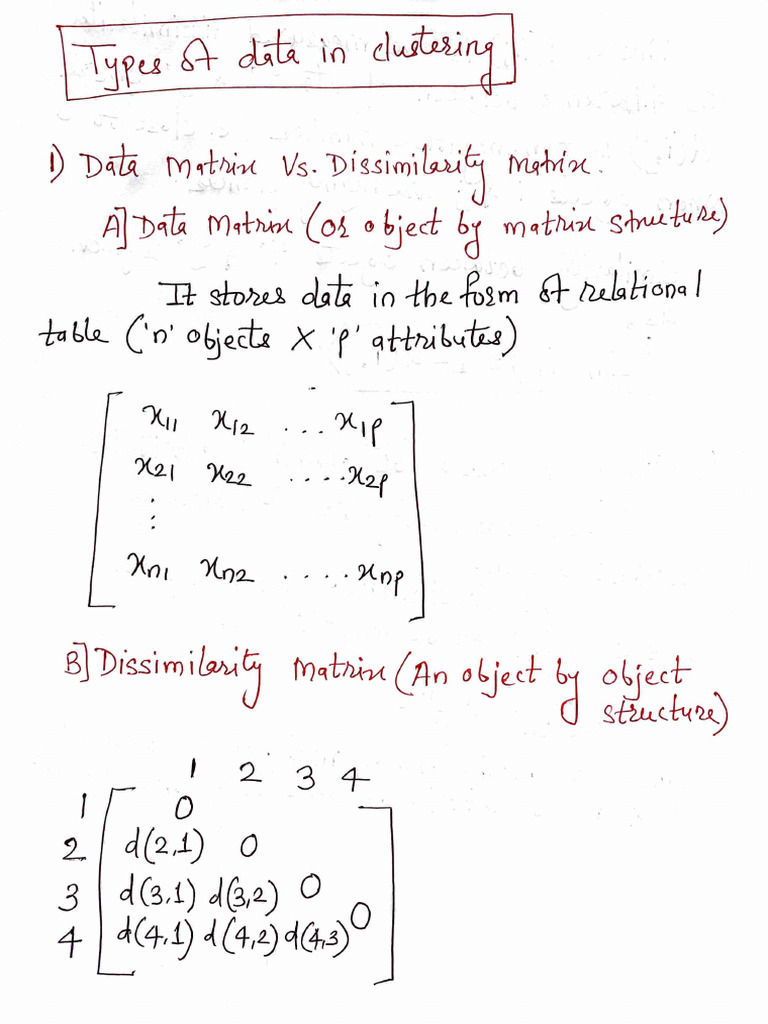 Types of data in clustering
1) Data Matrix Vs. Dissimilarity Matrix.
A] Data Matrix (or object by matrix structure)
It stores data in the form of relational
table ('n' objects X 'p' attributes)
x11 x12 ... x1p
x21 x22 ..... x2p
⋮
xn1 xn2 ..... xnp
B] Dissimilarity Matrix (An object by object
structure)
1 2 3 4
1 0
2 d(2,1) 0
3 d(3,1) d(3,2) 0
4 d(4,1) d(4,2) d(4,3) 0